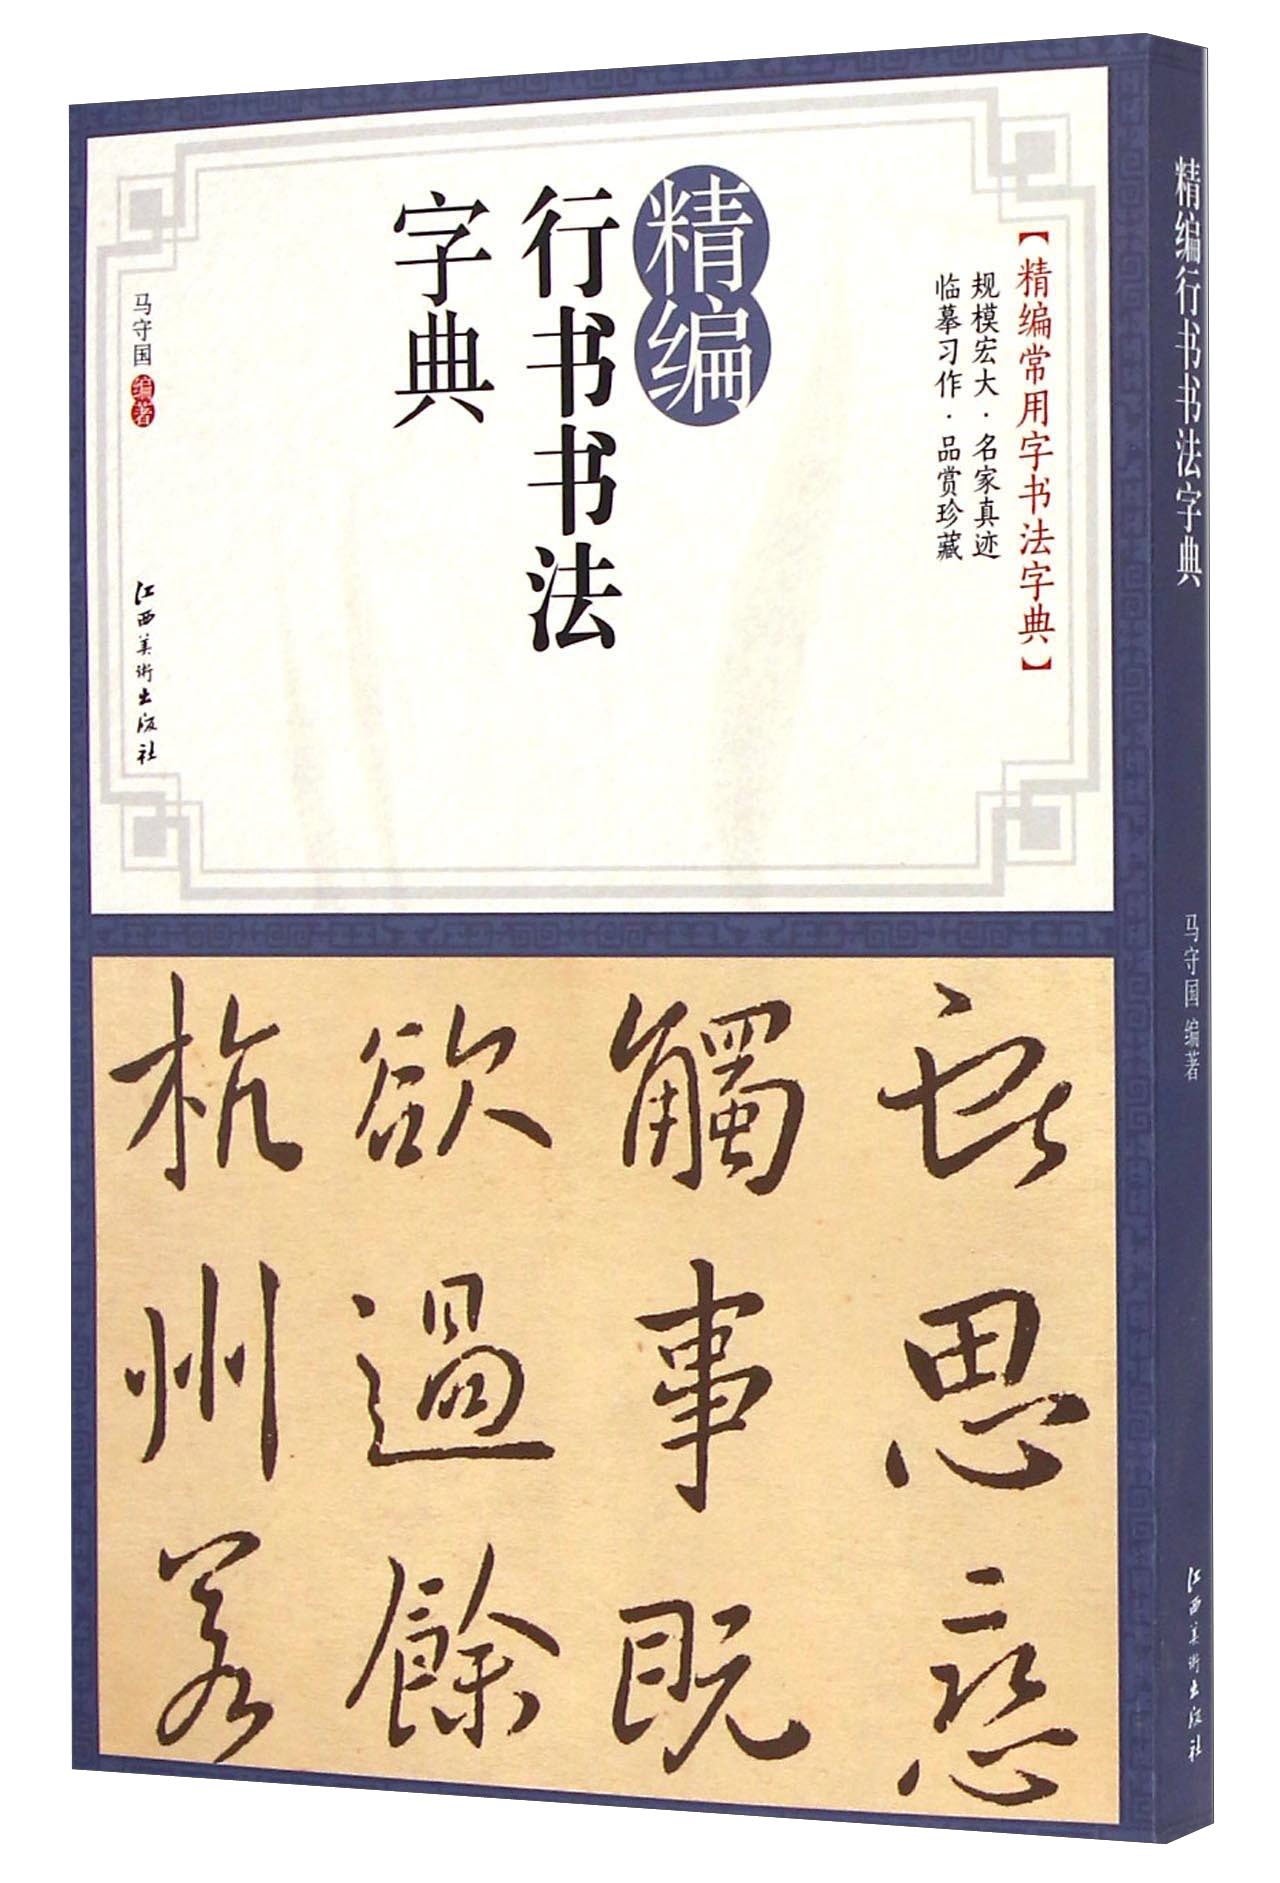 【精编常用字书法字典】
规模宏大·名家真迹
临摹习作·品赏珍藏
精编
行书书法
字典
马守国 编著
江西美術出版社
思
觸事既
欲過餘
杭州
精编行书书法字典
马守国 编著
江西美術出版社